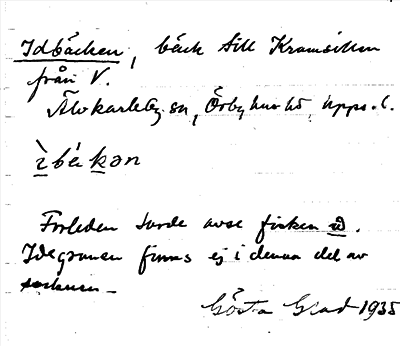 Idbäcken, bäck till Kramsillen
från V.
Älvkarleby sn, Örbyhus hd, Upps. l.
ìbékən
Förleden torde avse fisken id.
Idegranen finns ej i denna del av
socknen –
Gösta Grad 1935